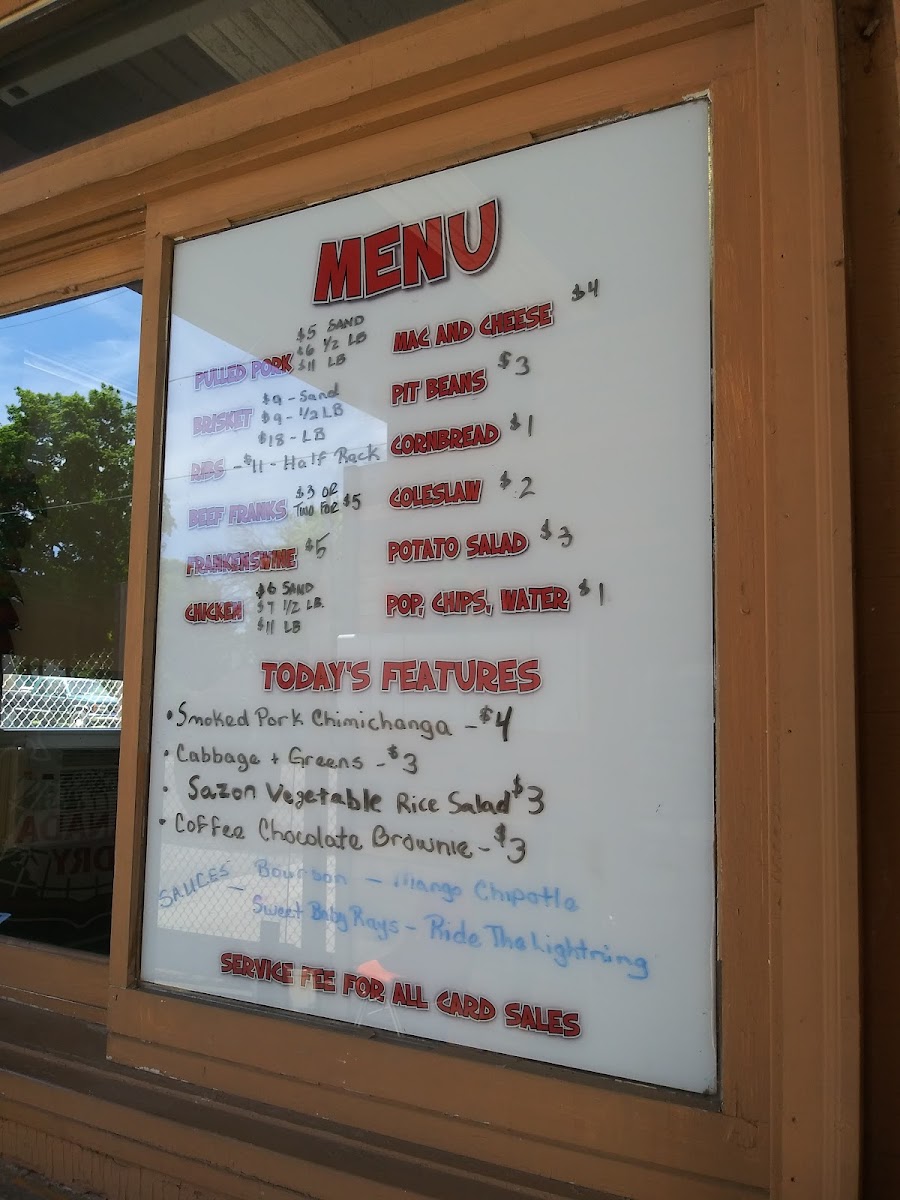 MENU
PULLED PORK $5 SAND
$6 1/2 LB
$11 LB
BRISKET $9 - Sand
$9 - 1/2 LB
$18 - LB
RIBS - $11 - Half Rack
BEEF FRANKS $3 OR
TWO FOR $5
FRANKENSWINE $5
CHICKEN $6 SAND
$7 1/2 LB.
$11 LB
MAC AND CHEESE $4
PIT BEANS $3
CORNBREAD $1
COLESLAW $2
POTATO SALAD $3
POP, CHIPS, WATER $1
TODAY'S FEATURES
• Smoked Pork Chimichanga - $4
• Cabbage + Greens - $3
• Sazon Vegetable Rice Salad $3
• Coffee Chocolate Brownie - $3
SAUCES Bourbon - Mango Chipotle
- Sweet Baby Rays - Ride The Lightning
SERVICE FEE FOR ALL CARD SALES